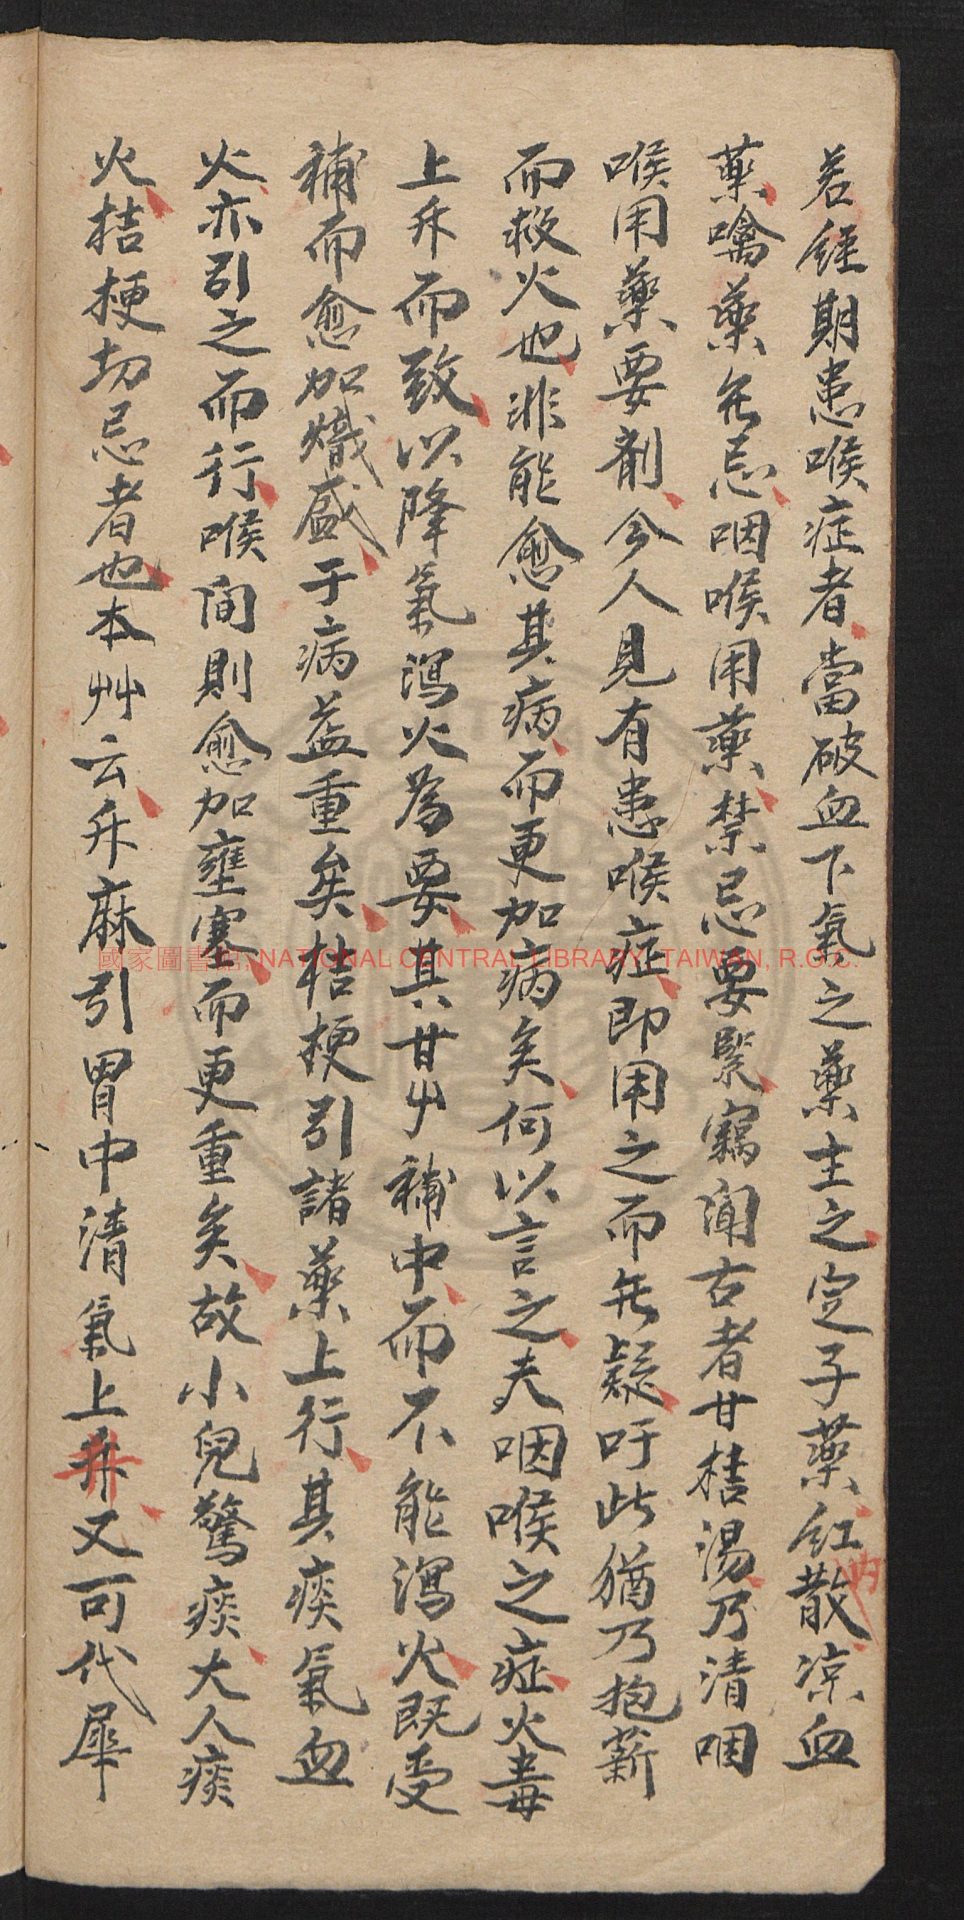 若經期患喉症者當破血下氣之藥主之定子藥紅內散涼血
藥噙藥無忌咽喉用藥禁忌要緊竊聞古者甘桔湯乃清咽
喉用藥要劑今人見有患喉症即用之而無疑吁此猶乃抱薪
而救火也非能愈其病而更加病矣何以言之夫咽喉之症火毒
上升而致以降氣瀉火為要其甘艸補中而不能瀉火既受
補而愈加熾盛于病益重矣桔梗引諸藥上行其痰氣血
火亦引之而行喉間則愈加壅塞而更重矣故小兒驚痰大人痰
火桔梗切忌者也本艸云升麻引胃中清氣上升又可代犀
國家圖書館, NATIONAL CENTRAL LIBRARY, TAIWAN, R.O.C